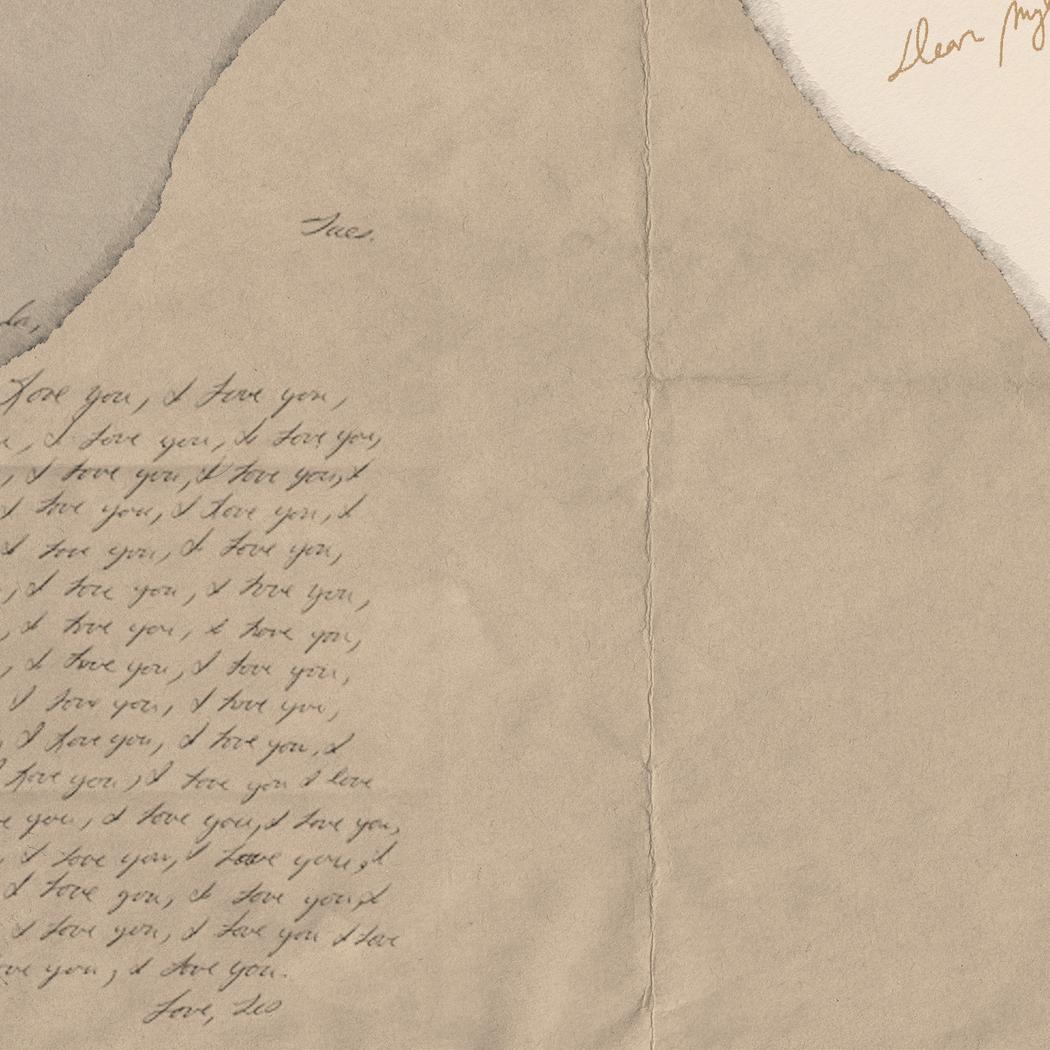 Dear
Tues.
la,
Love you, I love you,
, I love you, I love you,
, I love you, I love you, I
I love you, I love you, I
I love you, I love you,
, I love you, I love you,
, I love you, I love you,
, I love you, I love you,
I love you, I love you,
, I love you, I love you, I
love you, I love you I love
you, I love you, I love you,
, I love you, I love you, I
I love you, I love you, I
I love you, I love you I love
you, I love you.
Love, Leo